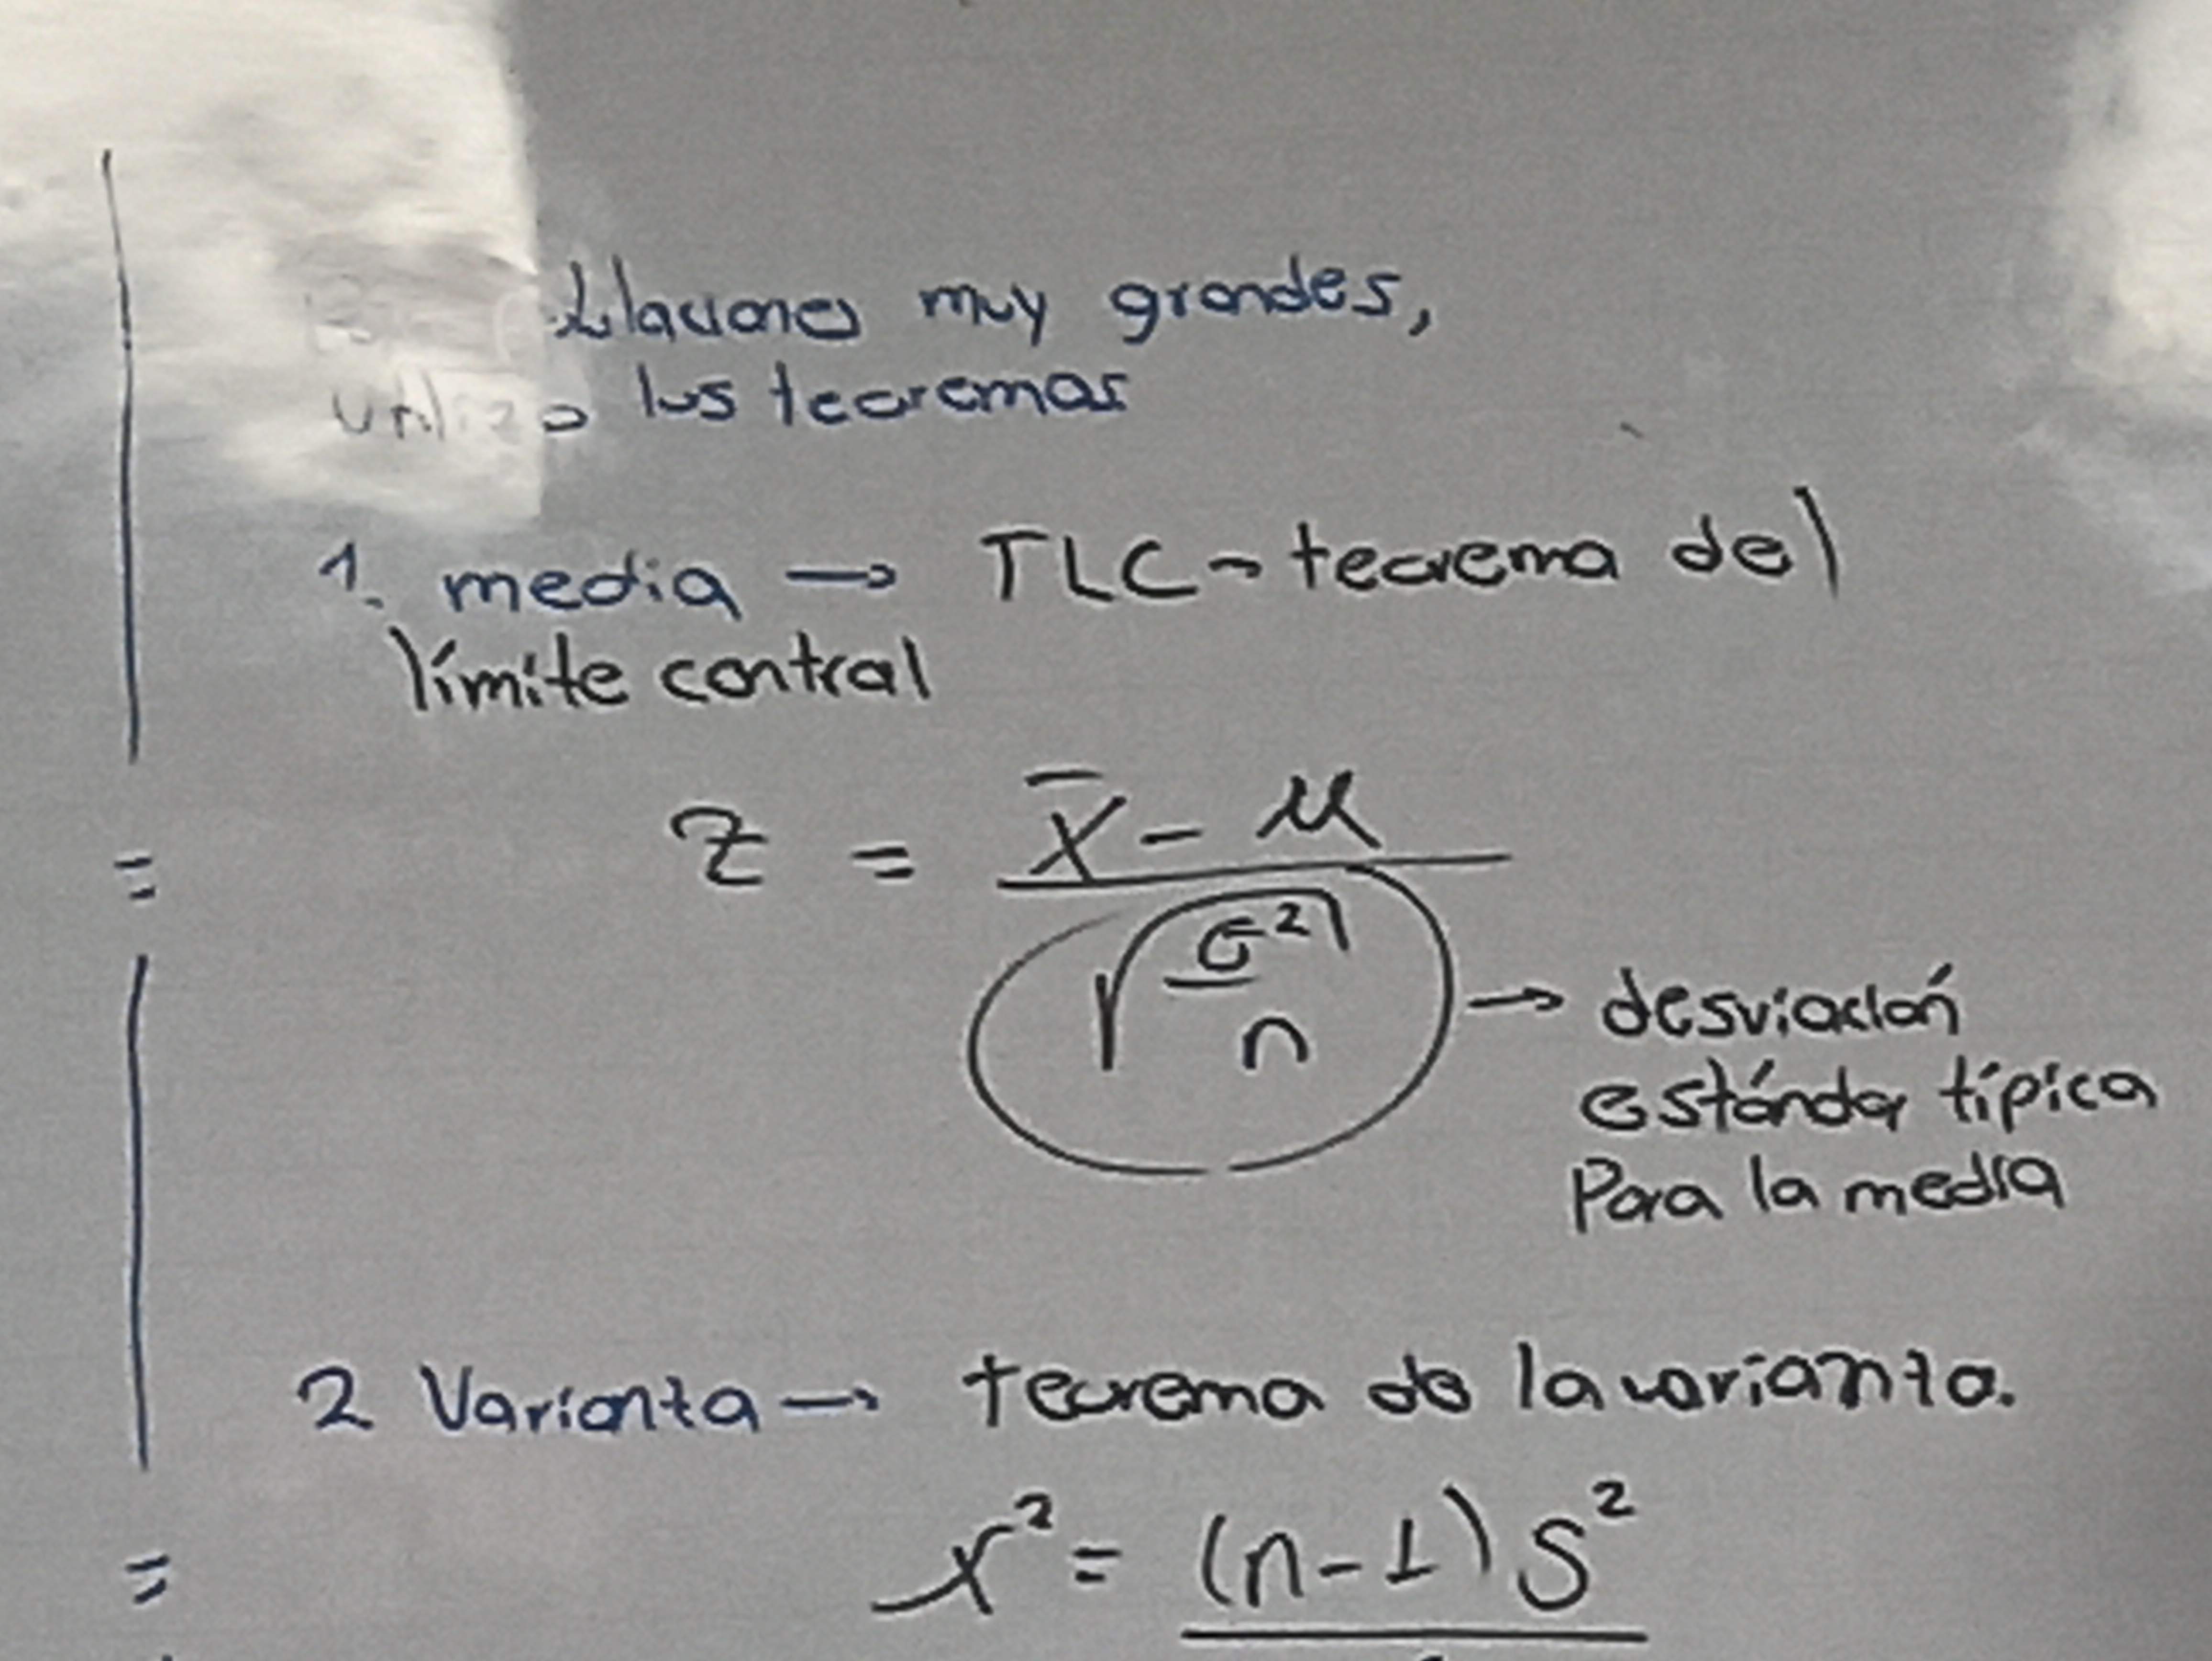 muy grandes,
utilizo los teoremas
1. media → TLC → teorema del
límite central
z = x̄ - μ / √(σ² / n) → desviación
estándar típica
Para la media
2 Varianza → teorema de la varianza.
x² = (n-1) S²